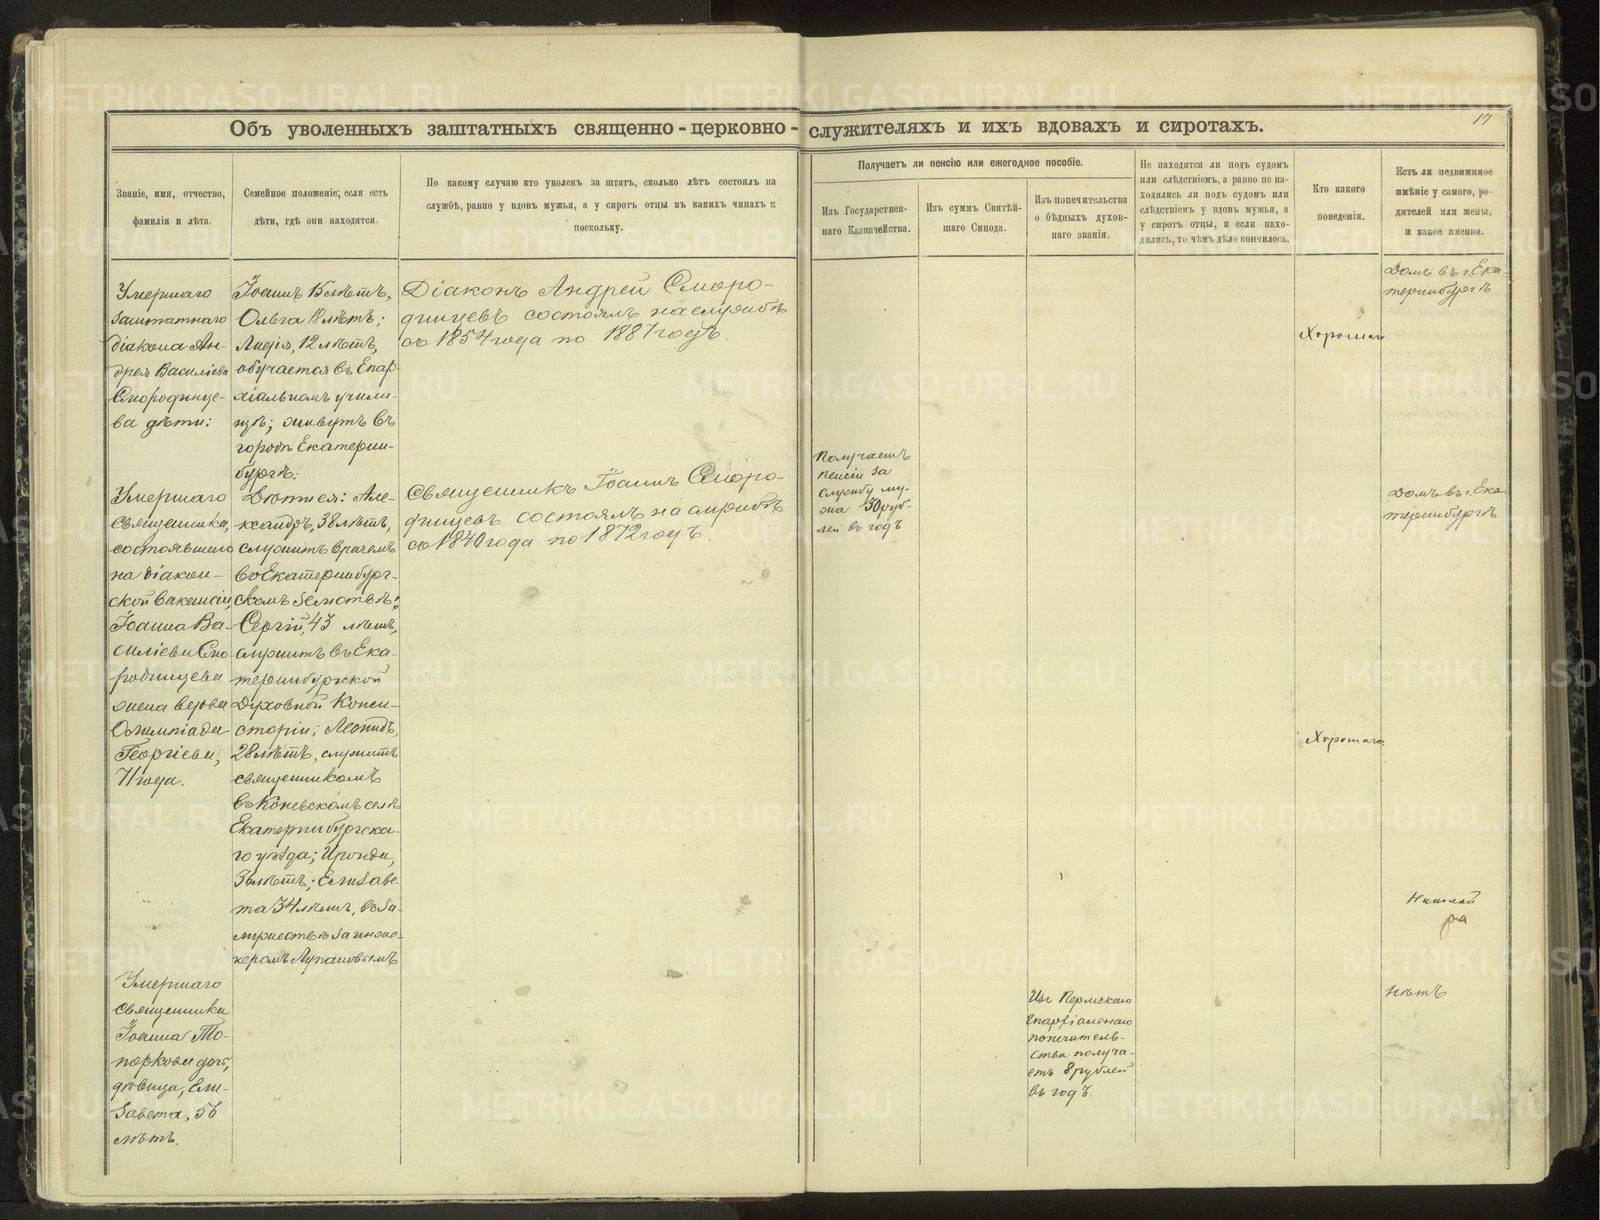 17
Объ уволенныхъ заштатныхъ священно-церковно-служителяхъ и ихъ вдовахъ и сиротахъ.
Званіе, имя, отчество,
фамилія и лѣта.
Семейное положеніе; если есть
дѣти, гдѣ они находятся.
По какому случаю кто уволенъ за штатъ, сколько лѣтъ состоялъ на
службѣ, равно у вдовъ мужья, а у сиротъ отцы въ какихъ чинахъ и
поскольку.
Получаетъ ли пенсію или ежегодное пособіе.
Изъ Государствен-
наго Казначейства.
Изъ суммъ Святѣй-
шаго Синода.
Изъ попечительства
о бѣдныхъ духов-
наго званія.
Не находятся ли подъ судомъ
или слѣдствіемъ, а равно не на-
ходились ли подъ судомъ или
слѣдствіемъ у вдовъ мужья, а
у сиротъ отцы, и если нахо-
дились, то чѣмъ дѣло кончилось.
Кто какого
поведенія.
Есть ли недвижимое
имѣніе у самого, ро-
дителей или жены,
и какое именно.
Умершаго
заштатнаго
діакона Ан-
дрея Василіева
Смородинце-
ва дѣти:
Іоаннъ 15 лѣтъ,
Ольга 18 лѣтъ;
Лидія, 12 лѣтъ,
обучается въ Епар-
хіальномъ учили-
щѣ; живутъ въ
городѣ Екатерин-
бургѣ.
Діаконъ Андрей Сморо-
динцевъ состоялъ на службѣ
съ 1854 года по 1887 годъ.
Хорошаго
Домъ въ г. Ека-
теринбургѣ
Умершаго
священника,
состоявшаго
на діакон-
ской вакансіи,
Іоанна Ва-
силіева Смо-
родинцева
жена вдова
Олимпіада
Георгіева,
71 года.
Дѣти ея: Але-
ксандръ, 38 лѣтъ,
служитъ врачемъ
въ Екатеринбург-
скомъ земствѣ;
Сергій, 43 лѣтъ,
служитъ въ Ека-
теринбургской
Духовной Конси-
сторіи; Леонидъ,
28 лѣтъ, служитъ
священникомъ
въ Коневскомъ селѣ
Екатеринбургска-
го уѣзда;
36 лѣтъ; Елизаве-
та 34 лѣтъ, въ за-
мужествѣ за инже-
неромъ
Священникъ Іоаннъ Сморо-
динцевъ состоялъ на службѣ
съ 1840 года по 1872 годъ.
Получаетъ
пенсіи за
службу му-
жа 30 руб-
лей въ годъ
Хорошаго
Домъ въ г. Ека-
теринбургѣ
Умершаго
священника
Іоанна То-
поркова дочь,
дѣвица, Ели-
завета, 56
лѣтъ.
Изъ Пермскаго
Епархіальнаго
попечитель-
ства получа-
етъ 8 рублей
въ годъ.
Нѣтъ
METRIKI.GASO-URAL.RU